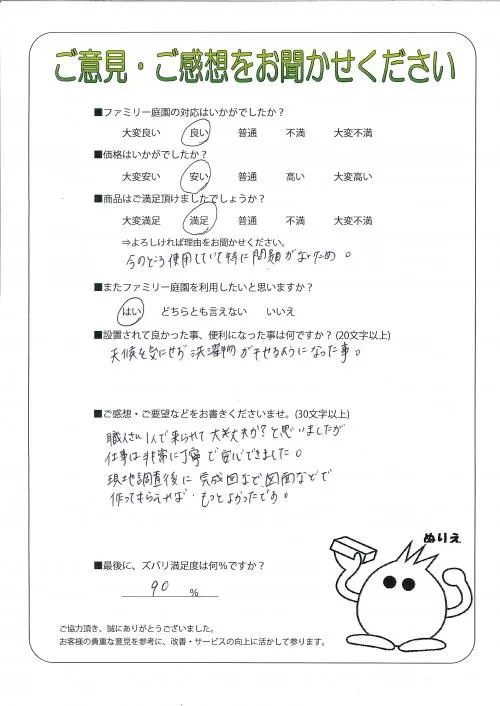 ご意見・ご感想をお聞かせください
■ファミリー庭園の対応はいかがでしたか？
大変良い 良い 普通 不満 大変不満
■価格はいかがでしたか？
大変安い 安い 普通 高い 大変高い
■商品はご満足頂けましたでしょうか？
大変満足 満足 普通 不満 大変不満
⇒よろしければ理由をお聞かせください。
今のところ使用していて特に問題がないため。
■またファミリー庭園を利用したいと思いますか？
はい どちらとも言えない いいえ
■設置されて良かった事、便利になった事は何ですか？(20文字以上)
天候を気にせず洗濯物が干せるようになった事。
■ご感想・ご要望などをお書きくださいませ。(30文字以上)
職人さん1人で来られて大丈夫か？と思いましたが
仕事は非常に丁寧で安心できました。
現地調査後に完成図など図面などで
作ってもらえれば もっとよかったです。
■最後に、ズバリ満足度は何％ですか？
90 ％
ぬりえ
ご協力頂き、誠にありがとうございました。
お客様の貴重な意見を参考に、改善・サービスの向上に活かして参ります。